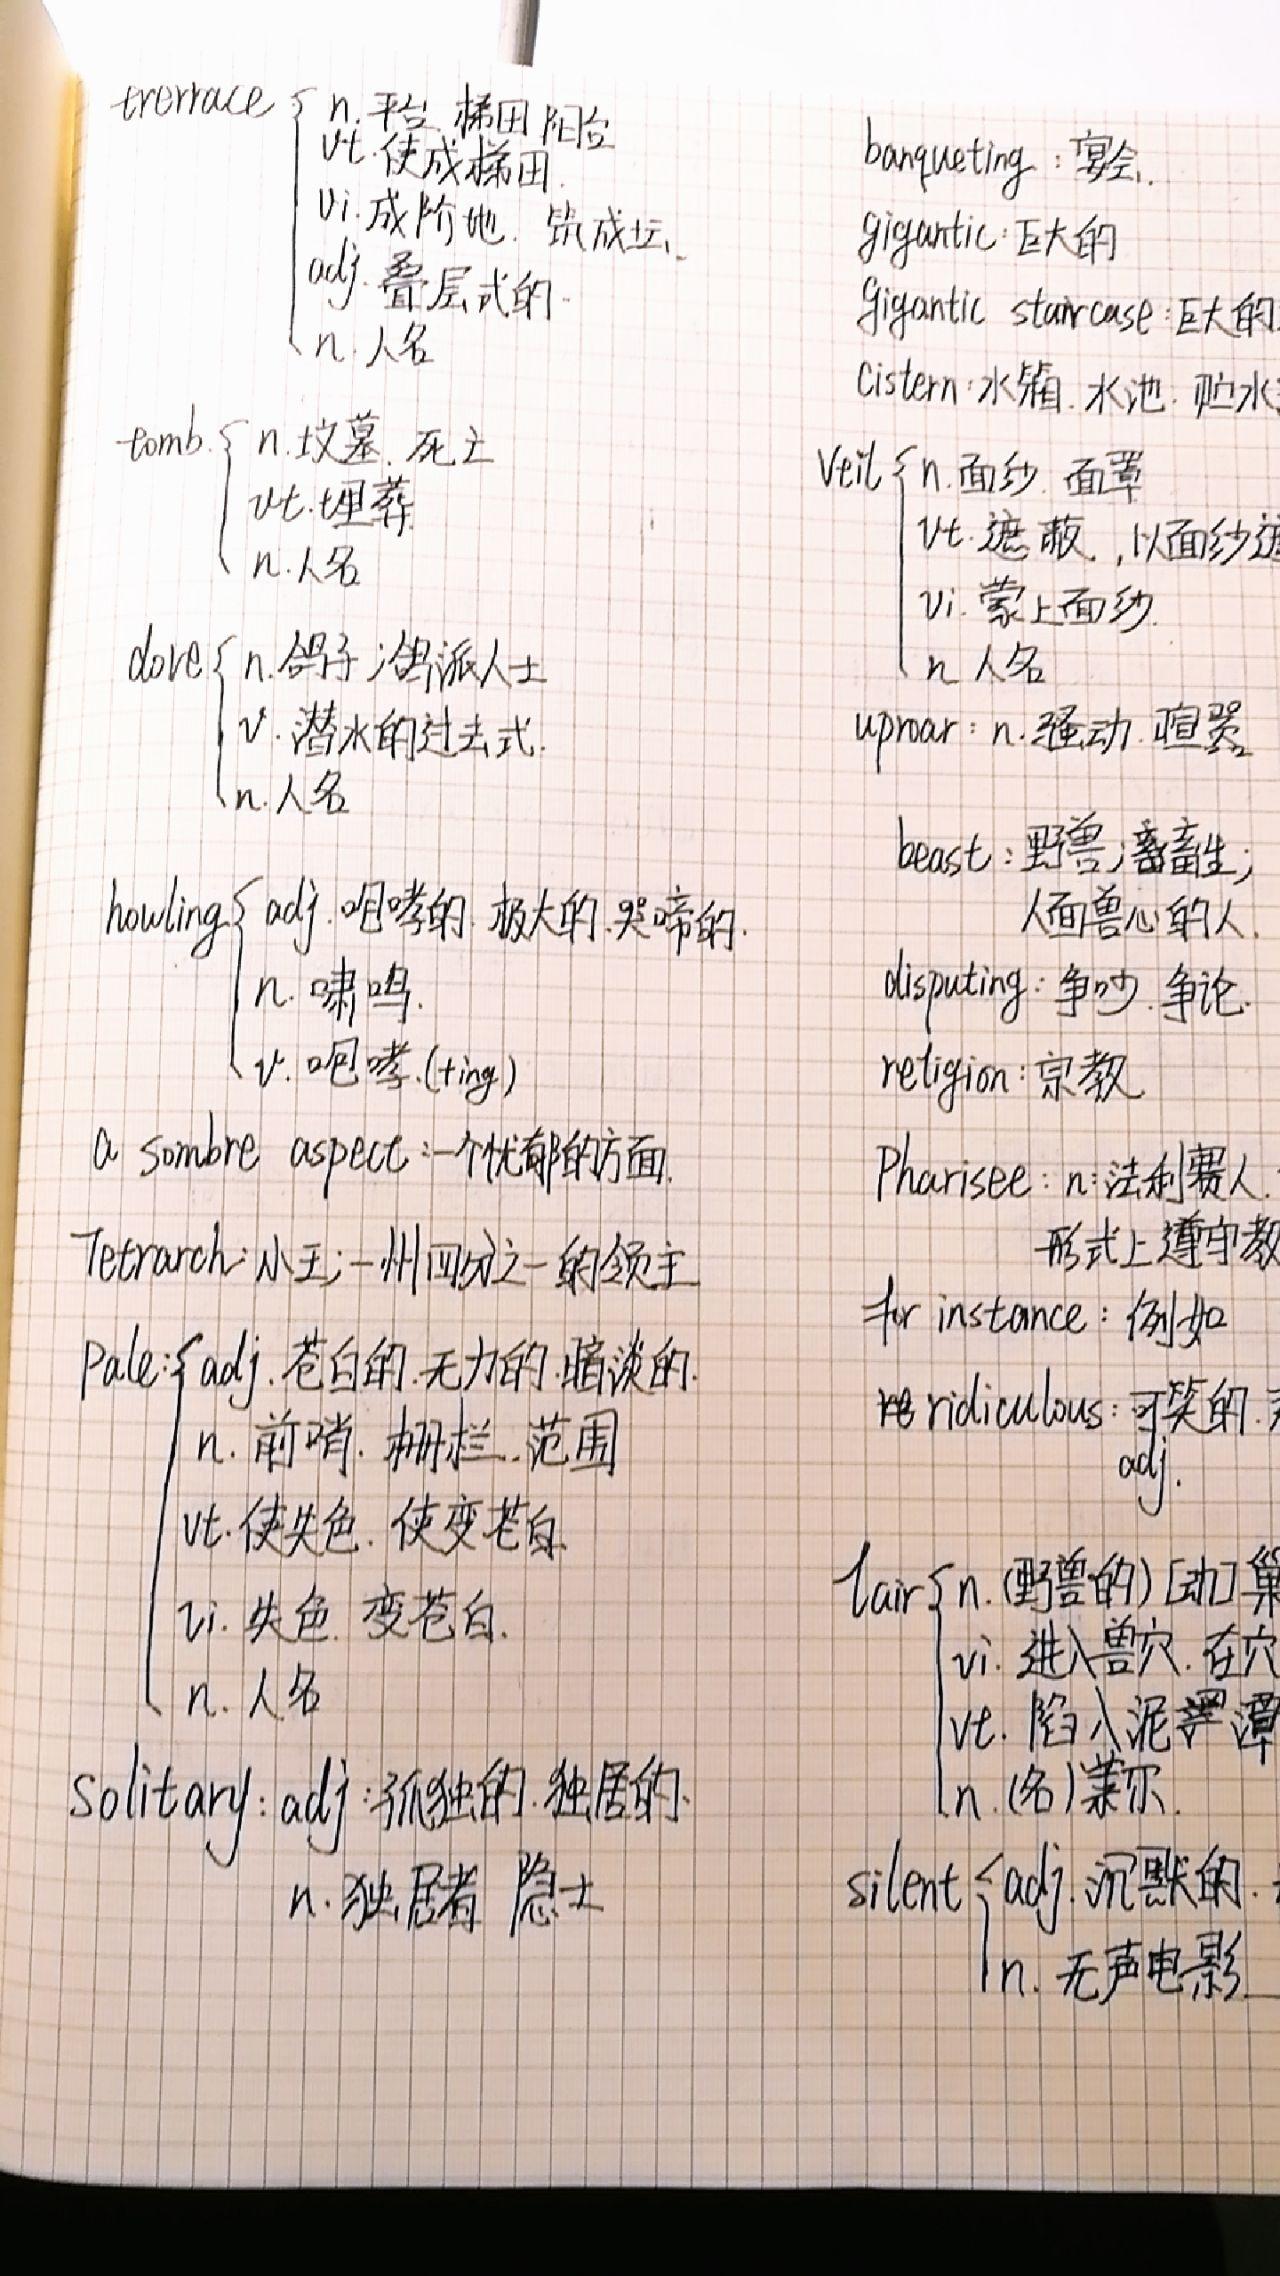 trerrace { n. 平台. 梯田 阳台
vt. 使成梯田.
vi. 成阶地. 筑成坛.
adj. 叠层式的.
n. 人名
tomb. { n. 坟墓. 死亡
vt. 埋葬.
n. 人名
dove { n. 鸽子; 鸽派人士
v. 潜水的过去式.
n. 人名
howling { adj. 咆哮的. 极大的. 哭啼的.
n. 啸鸣.
v. 咆哮.(+ing)
a sombre aspect: 一个忧郁的方面.
Tetrarch: 小王; 一州四分之一的领主
Pale: { adj. 苍白的. 无力的. 暗淡的.
n. 前哨. 栅栏. 范围
vt. 使失色. 使变苍白
vi. 失色. 变苍白.
n. 人名
Solitary: adj: 孤独的. 独居的.
n. 独居者 隐士
banqueting: 宴会.
gigantic: 巨大的
Gigantic staircase: 巨大的
Cistern: 水箱. 水池. 贮水
Veil { n. 面纱. 面罩
vt. 遮蔽., 以面纱遮
vi. 蒙上面纱.
n 人名
uproar: n. 骚动. 喧哭
beast: 野兽; 畜生;
人面兽心的人.
disputing: 争吵. 争论.
religion: 宗教
Pharisee: n: 法利赛人.
形式上遵守教
for instance: 例如
ridiculous: 可笑的.
adj.
lair { n. (野兽的) [动] 巢
vi. 进入兽穴. 在穴
vt. 陷入泥潭
n. (名) 莱尔.
silent { adj. 沉默的.
n. 无声电影